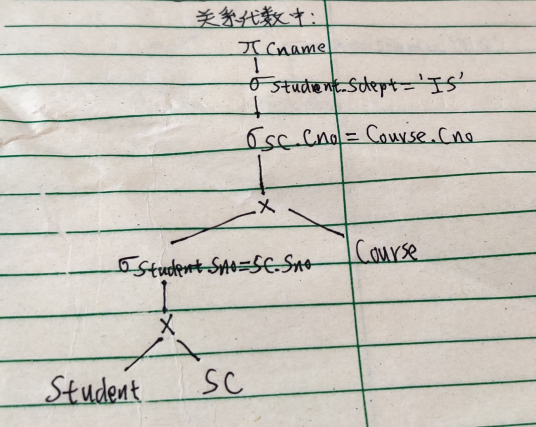 关系代数中:
π Cname
σ Student.Sdept = 'IS'
σ SC.Cno = Course.Cno
×
σ Student.Sno=SC.Sno
Course
×
Student
SC